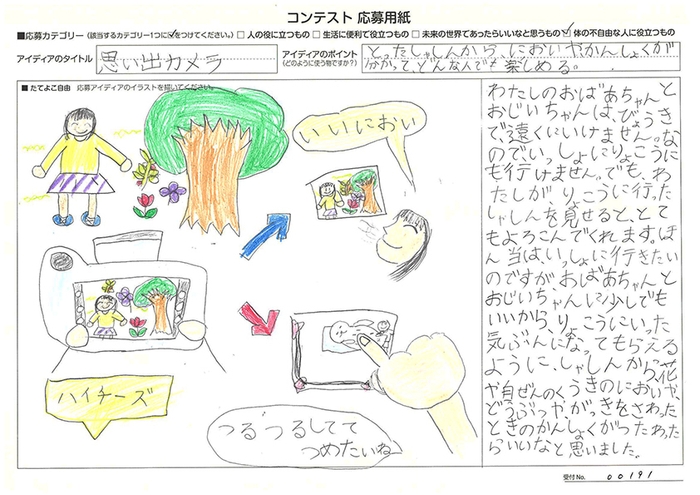 コンテスト 応募用紙
■応募カテゴリー (該当するカテゴリー1つに✓をつけてください。) □ 人の役に立つもの □ 生活に便利で役立つもの □ 未来の世界であったらいいなと思うもの ☑ 体の不自由な人に役立つもの
アイディアのタイトル 思い出カメラ
アイディアのポイント
(どのように使う物ですか?)
とったしゃしんから、においやかんしょくが
分かって、どんな人でも楽しめる。
■ たてよこ自由 応募アイディアのイラストを描いてください。
いいにおい
ハイチーズ
つるつるしてて
つめたいね
わたしのおばあちゃんと
おじいちゃんは、びょうき
で遠くにいけません。な
のでいっしょにりょこうに
も行けません。でも、わ
たしが、りょこうに行った
しゃしんを見せると、とて
もよろこんでくれます。ほ
ん当はいっしょに行きたい
のですが、おばあちゃんと
おじいちゃんに少しでも
いいから、りょこうにいった
気ぶんになってもらえる
ように、しゃしんから花
や自ぜんのくうきのにおいや、
どうぶつやがっきをさわった
ときのかんしょくがつたわった
らいいなと思いました。
受付No. 00191